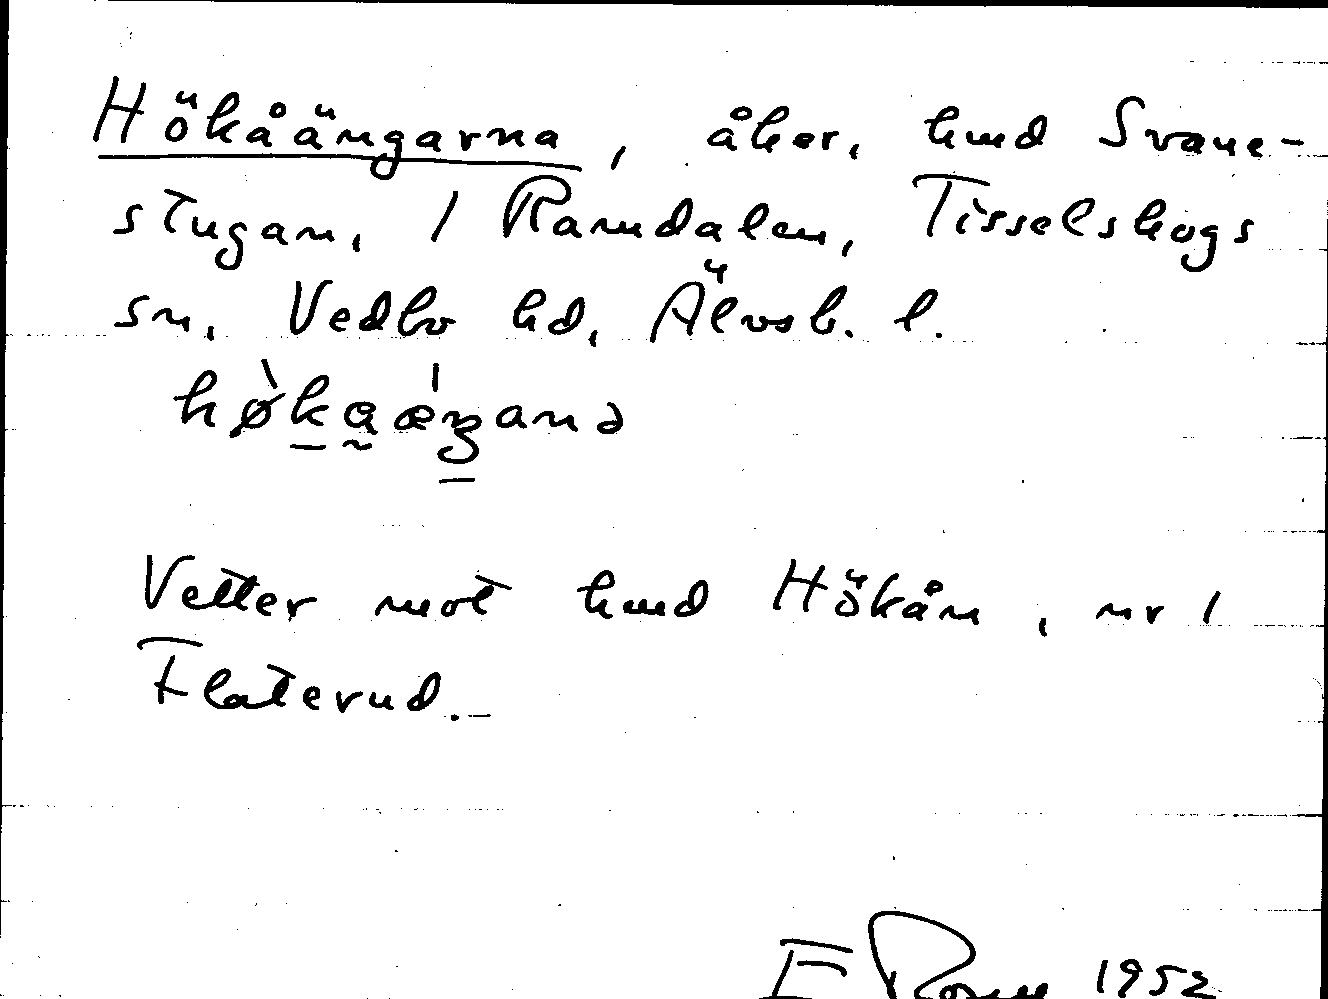 Hökåängarna, åker, hmd Svane-
stugan, 1 Ramdalen, Tisselskogs
sn, Vedbo hd, Älvsb. l.
Vetter mot hmd Hökån, nr 1
Flaterud.
1952